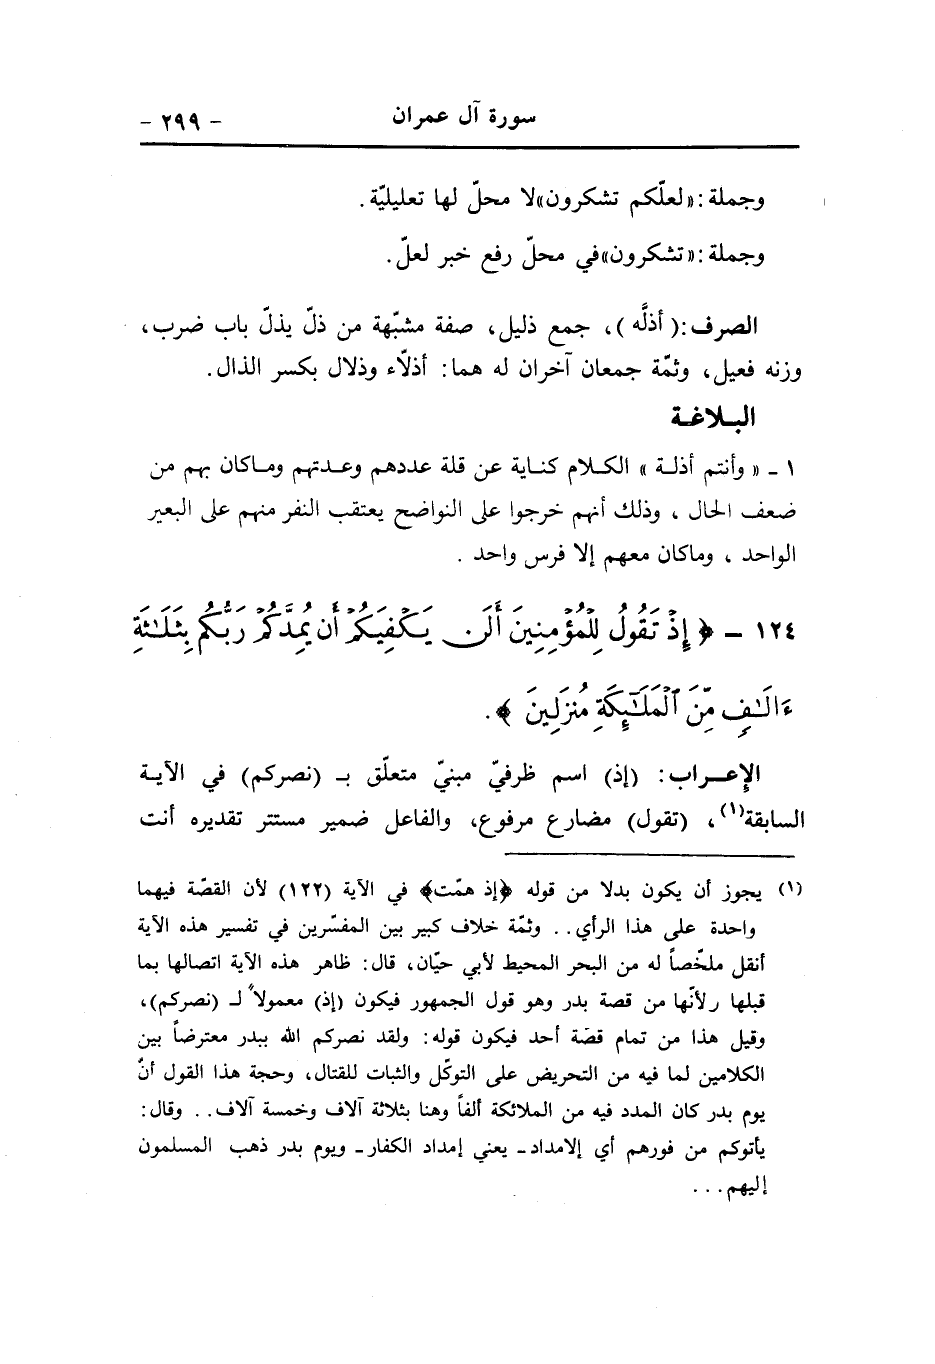 سورة آل عمران - ٢٩٩ -
وجملة :«لعلّكم تشكرون»لا محلّ لها تعليليّة .
وجملة :«تشكرون»في محلّ رفع خبر لعلّ .
الصرف :( أذلَّه )، جمع ذليل، صفة مشبّهة من ذلّ يذلّ باب ضرب،
وزنه فعيل، وثمّة جمعان آخران له هما: أذلّاء وذلال بكسر الذال .
البـلاغـة
١ ـ « وأنتم أذلـة » الكـلام كنـاية عن قلة عددهم وعـدتهم ومـاكان بهم من
ضعف الحال ، وذلك أنهم خرجوا على النواضح يعتقب النفر منهم على البعير
الواحد ، وماكان معهم إلا فرس واحد .
١٢٤ - ﴿ إِذْ تَقُولُ لِلْمُؤْمِنِينَ أَلَن يَكْفِيَكُمْ أَن يُمِدَّكُمْ رَبُّكُم بِثَلَـٰثَةِ
ءَالَـٰفٍ مِّنَ ٱلْمَلَـٰٓئِكَةِ مُنزَلِينَ ﴾.
الإعــراب: (إذ) اسم ظرفيّ مبنيّ متعلّق بـ (نصركم) في الآيـة
السابقة(١)، (تقول) مضارع مرفوع، والفاعل ضمير مستتر تقديره أنت
(١) يجوز أن يكون بدلا من قوله ﴿إذ همّت﴾ في الآية (١٢٢) لأن القصّة فيهما
واحدة على هذا الرأي. . وثمّة خلاف كبير بين المفسّرين في تفسير هذه الآية
أنقل ملخّصاً له من البحر المحيط لأبي حيّان، قال: ظاهر هذه الآية اتصالها بما
قبلها رلأنّها من قصة بدر وهو قول الجمهور فيكون (إذ) معمولاً لـ (نصركم)،
وقيل هذا من تمام قصّة أحد فيكون قوله: ولقد نصركم الله ببدر معترضاً بين
الكلامين لما فيه من التحريض على التوكّل والثبات للقتال، وحجة هذا القول أنّ
يوم بدر كان المدد فيه من الملائكة ألفاً وهنا بثلاثة آلاف وخمسة آلاف. . وقال:
يأتوكم من فورهم أي إلامداد ـ يعني إمداد الكفار ـ ويوم بدر ذهب المسلمون
إليهم. . .